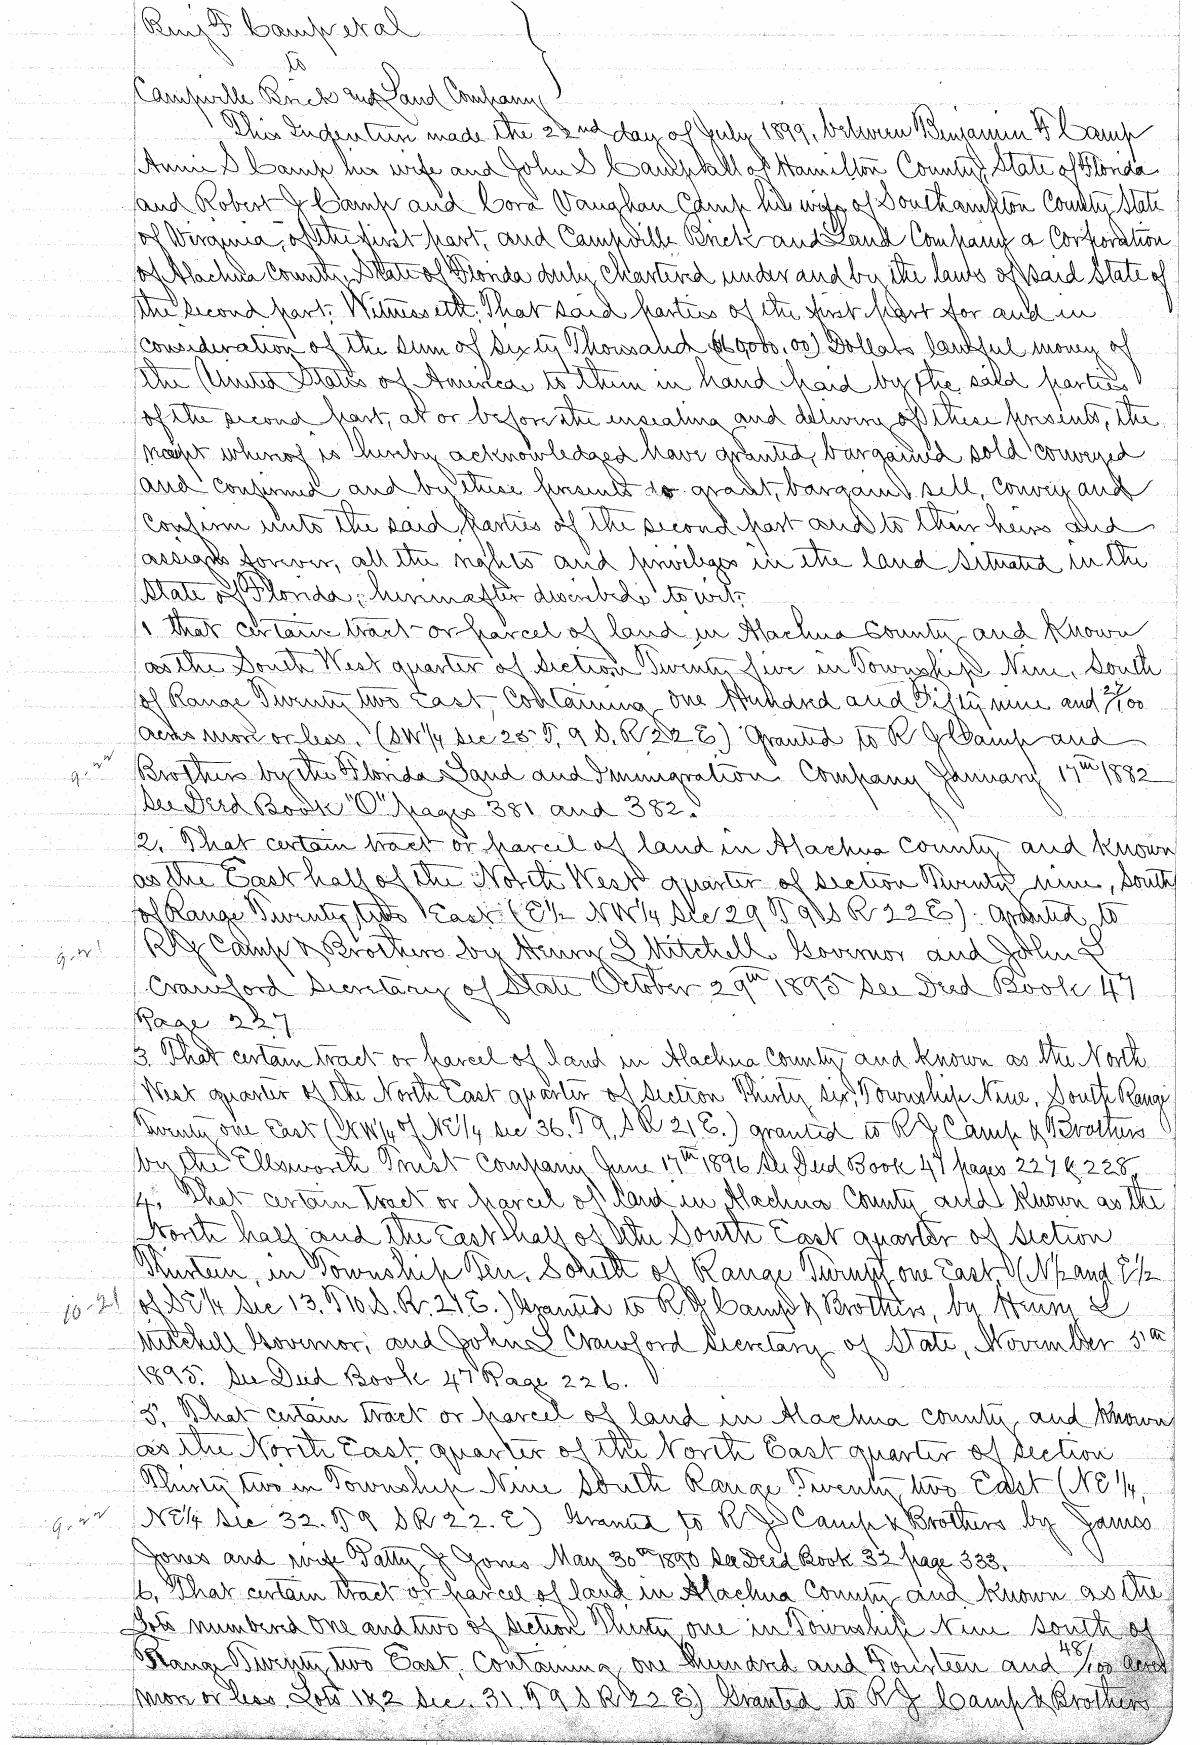 Benj F Camp et al
to
Campville Brick and Land Company
This Indenture made the 22nd day of July 1899, between Benjamin F Camp
Annie S Camp his wife and John S Camp all of Hamilton County, State of Florida
and Robert J Camp and Cora Vaughan Camp his wife of Southampton County State
of Virginia, of the first part, and Campville Brick and Land Company a Corporation
of Alachua County, State of Florida duly chartered under and by the laws of said State of
the second part: Witnesseth: That said parties of the first part for and in
consideration of the sum of Sixty Thousand ($60,000.00) Dollars lawful money of
the United States of America to them in hand paid by the said parties
of the second part, at or before the ensealing and delivery of these presents, the
receipt whereof is hereby acknowledged have granted, bargained sold conveyed
and confirmed and by these presents do grant, bargain, sell, convey and
confirm unto the said parties of the second part and to their heirs and
assigns forever, all the rights and privileges in the land situated in the
State of Florida, hereinafter described, to wit:
1 That certain tract or parcel of land in Alachua County and known
as the South West quarter of Section Twenty five in Township Nine, South
of Range Twenty two East, containing one Hundred and Fifty nine and 27/100
acres more or less. (SW1/4 Sec 25. T. 9 S. R 22 E) Granted to R J Camp and
9-22
Brothers by the Florida Land and Immigration Company January 17th 1882
See Deed Book "O" pages 381 and 382.
2. That certain tract or parcel of land in Alachua County and known
as the East half of the North West quarter of section Twenty nine, South
of Range Twenty two East (E1/2 NW1/4 Sec 29 T 9 S R 22 E) granted to
9-22
R J Camp & Brothers by Henry L Mitchell Governor and John L
Crawford Secretary of State October 29th 1895 See Deed Book 47
Page 227
3. That certain tract or parcel of land in Alachua County and known as the North
West quarter of the North East quarter of Section Thirty six, Township Nine, South Range
Twenty one East (NW1/4 of NE1/4 Sec 36. T 9, S R 21 E.) granted to R J Camp & Brothers
by the Ellsworth Trust Company June 17th 1896 See Deed Book 47 pages 227 & 228,
4. That certain tract or parcel of land in Alachua County and known as the
North half and the East half of the South East quarter of Section
Thirteen, in Township Ten, South of Range Twenty one East (N1/2 and E1/2
10-21
of SE1/4 Sec 13. T 10. S. R. 21 E.) Granted to R J Camp & Brothers, by Henry L
Mitchell Governor, and John L Crawford Secretary of State, November 5th
1895. See Deed Book 47 Page 226.
5. That certain tract or parcel of land in Alachua County and known
as the North East quarter of the North East quarter of section
Thirty two in Township Nine South Range Twenty two East (NE1/4,
9-22
NE1/4 Sec 32. T 9 S R 22. E) Granted to R J Camp & Brothers by James
Jones and wife Patty J Jones May 30th 1890 See Deed Book 32 page 333.
6. That certain tract or parcel of land in Alachua County and known as the
Lots numbered one and two of section Thirty one in Township Nine South of
Range Twenty two East, containing one hundred and Fourteen and 48/100 acres
more or less. Lots 1 & 2 Sec. 31. T 9 S R 22 E) Granted to R J Camp & Brothers